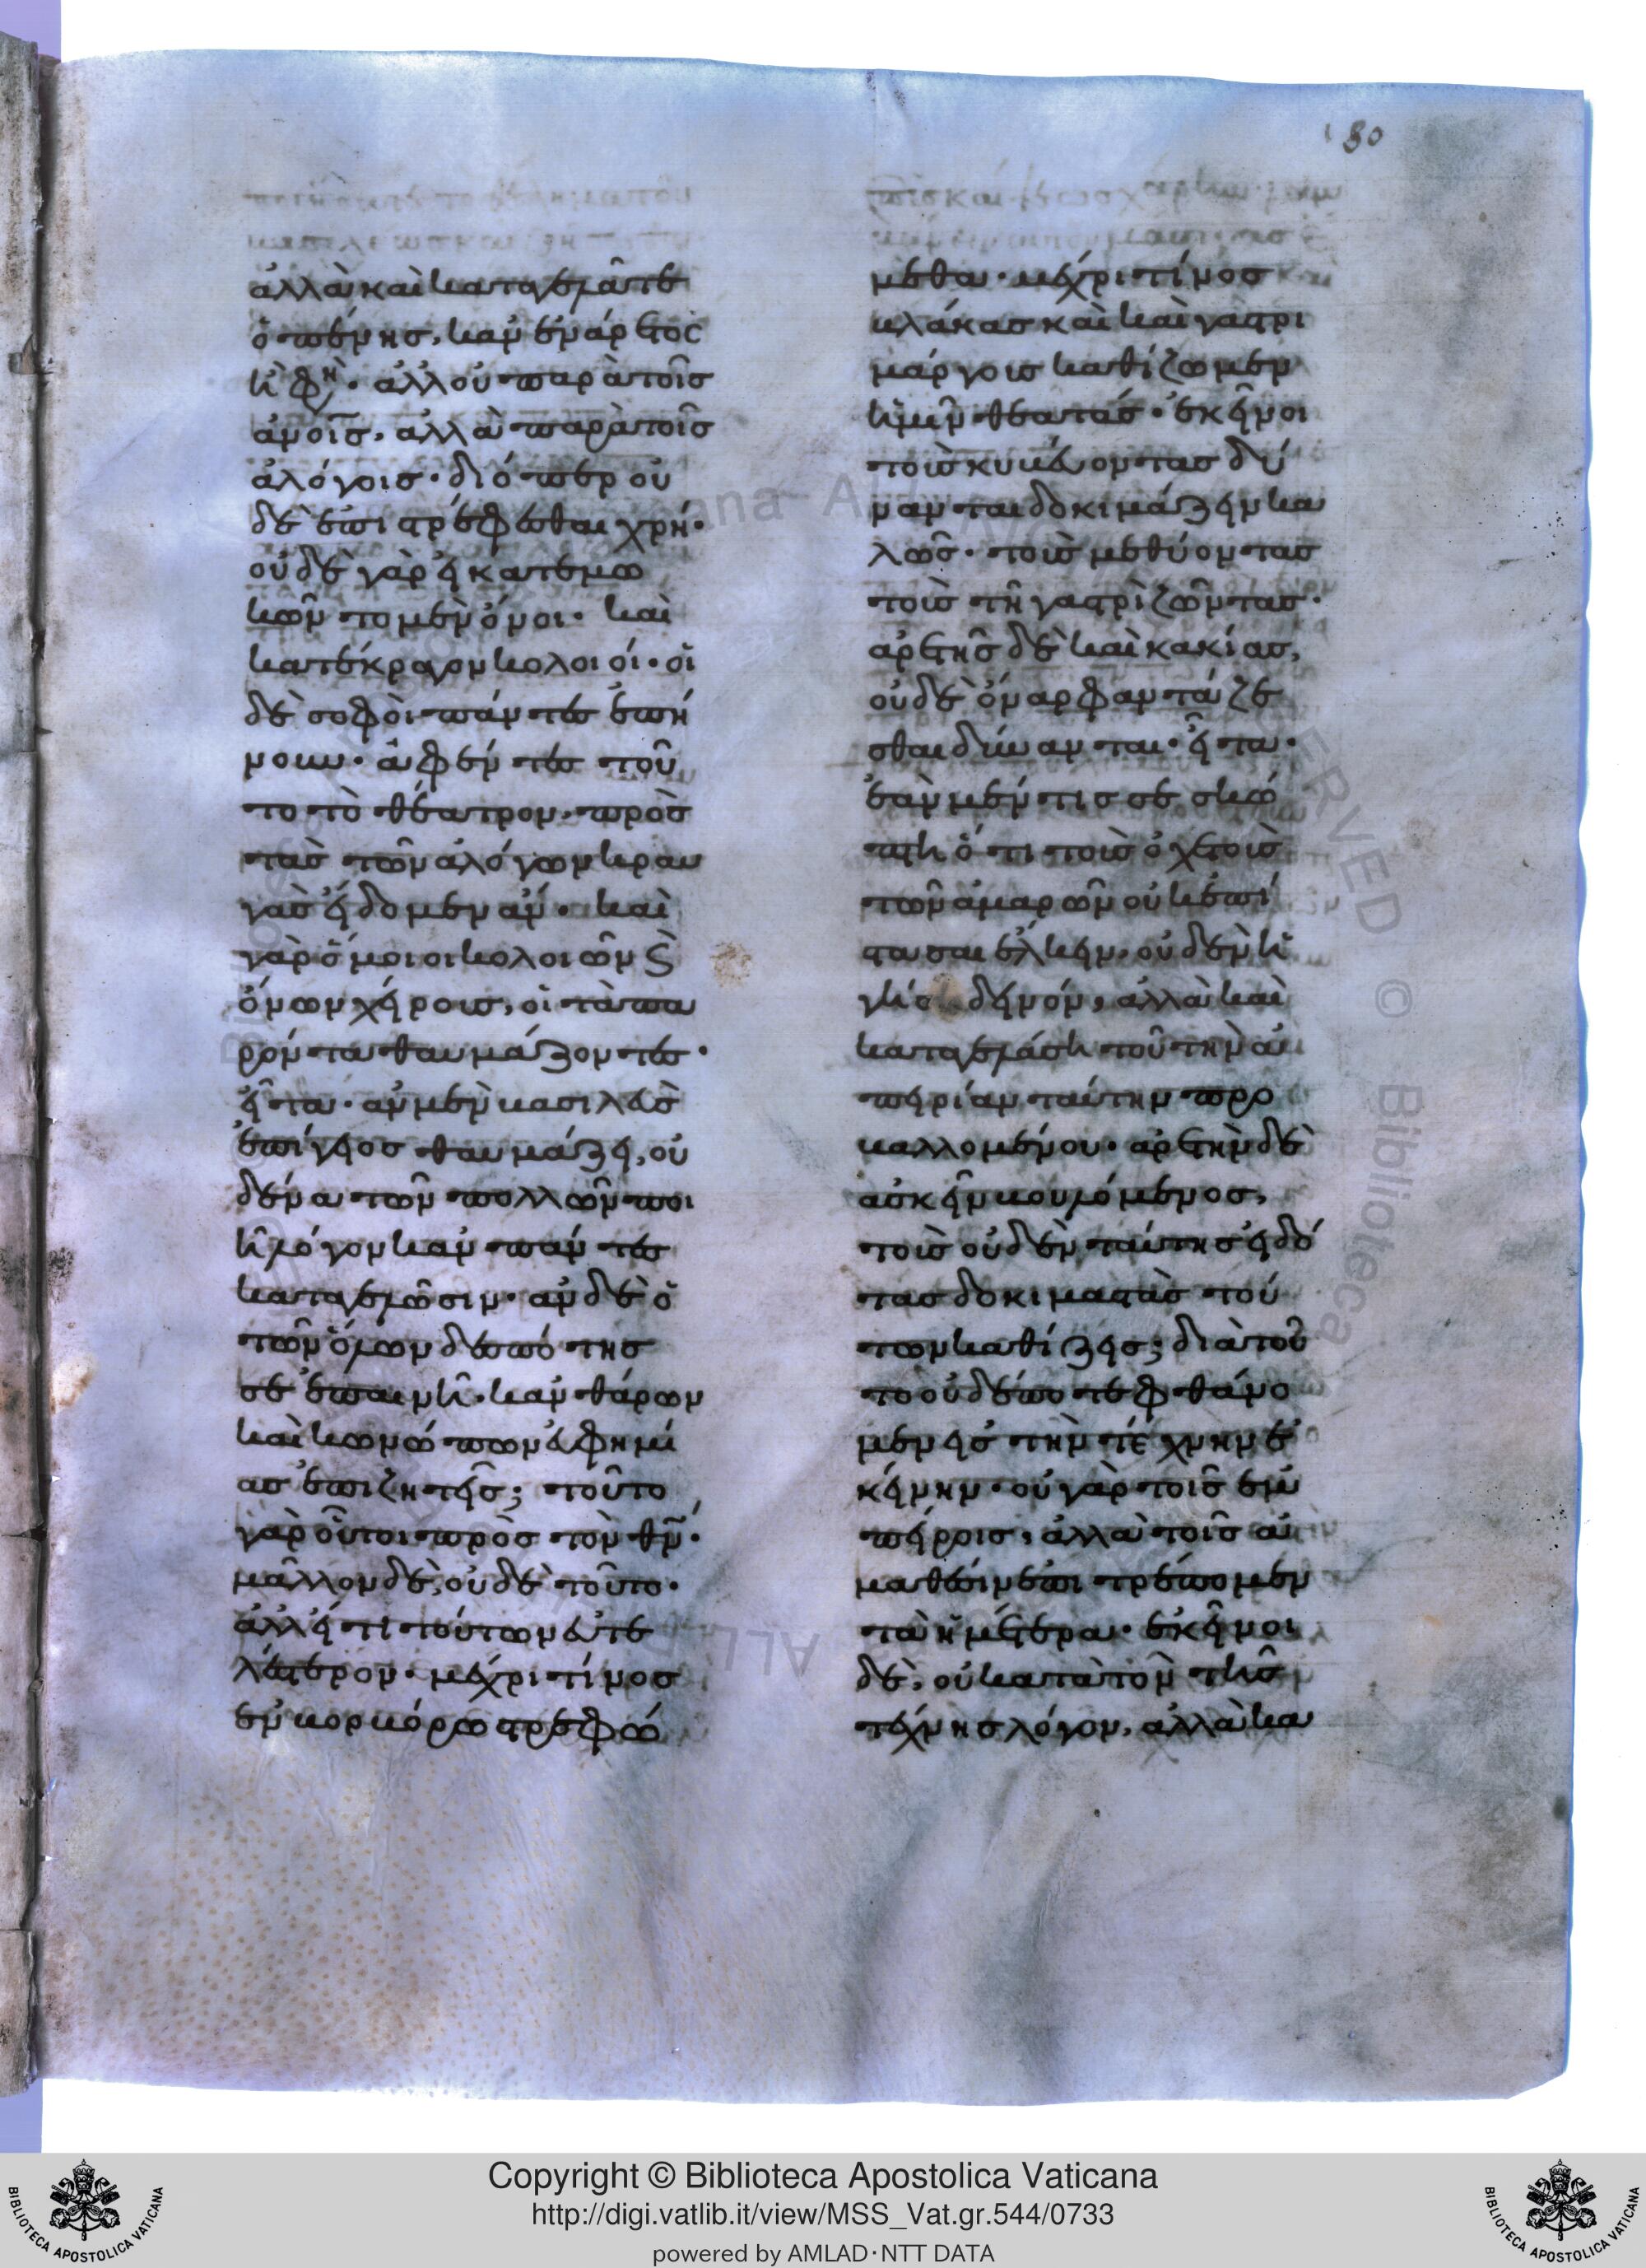 ἀλλὰ καὶ καταγελᾶτε
ὁ πένης, κἂν ἐνάρετος
ᾖ φη. ἀλλ' οὐ παρὰ τοῖς
ἀνοῖς, ἀλλὰ παρὰ τοῖς
ἀλόγοις· διόπερ οὐ
δὲ ἐπιστρέφεσθαι χρή·
οὐδὲ γὰρ εἰ κατεμω
κῶντο μὲν ὄνοι· καὶ
κατέκραγον κολοιοί· οἱ
δὲ σοφοὶ πάντες ἐπή
νουν· ἀφέντες τοῦ
το τὸ θέατρον, πρὸς
τὰς τῶν ἀλόγων κραυ
γὰς εἴδομεν ἄν· καὶ
γὰρ ὅμοιοι κολοιῶν ϗ
ὄνων χείροις, οἱ τὰ πα
ρόντα θαυμάζοντες·
εἶτα· ἂν μὲν βασιλεὺς
ἐπίγειος θαυμάζει, οὐ
δένα τῶν πολλῶν ποι
ῆ λόγον κἂν πάντες
καταγελῶσιν· ἂν δὲ ὁ
τῶν ὅλων δεσπότης
σε ἐπαινῆ, κανθάρων
καὶ κωνώπων εὐφημί
ας ἐπιζητεῖς; τοῦτο
γὰρ οὗτοι πρὸς τὸν θν·
μᾶλλον δὲ, οὐδὲ τοῦτο·
ἀλλ' εἴ τι τούτων εὐτε
λέστερον· μέχρι τίνος
ἐν βορβόρω στρεφό
80
μεθα· μέχρι τίνος
βλάκας καὶ καὶ γαστρι
μάργοις καθίζωμεν
ἡμῖν θεατάς· ἐκεῖνοι
τοὺς κυβεύοντας δύ
νανται δοκιμάζειν κα
λῶς· τοὺς μεθύοντας
τοὺς τῆ γαστρὶ ζῶντας·
ἀρετῆς δὲ καὶ κακίας,
οὐδὲ ὄναρ φαντάζε
σθαι δύνανται· εἶτα·
ἐὰν μέν τις σε σκώ
πτη ὅτι τοὺς ὀχετοὺς
τῶν ἀμαρῶν οὐκ ἐπί
στασαι ἕλκειν, οὐδὲν ἡ
δεινόν, ἀλλὰ καὶ
καταγελάση τοῦ τὴν ἀ
πειρίαν ταύτην προ
βαλλομένου· ἀρετὴν δὲ
ἀσκεῖν βουλόμενος,
τοὺς οὐδὲν ταύτης εἰδό
τας δοκιμαστὰς τού
των καθίζεις; διὰ τοῦ
το οὐδέποτε φθάνο
μεν εἰς τὴν τέχνην ἐ
κείνην· οὐ γὰρ τοῖς ἐμ
πείροις, ἀλλὰ τοῖς ἀ
μαθέσιν ἐπιτρέπομεν
τὰ ἡμέτερα· ἐκεῖνοι
δὲ, οὐ κατὰ τὸν τῆς
τέχνης λόγον, ἀλλὰ κα
Copyright © Biblioteca Apostolica Vaticana
http://digi.vatlib.it/view/MSS_Vat.gr.544/0733
powered by AMLAD·NTT DATA
BIBLIOTECA APOSTOLICA VATICANA
BIBLIOTECA APOSTOLICA VATICANA